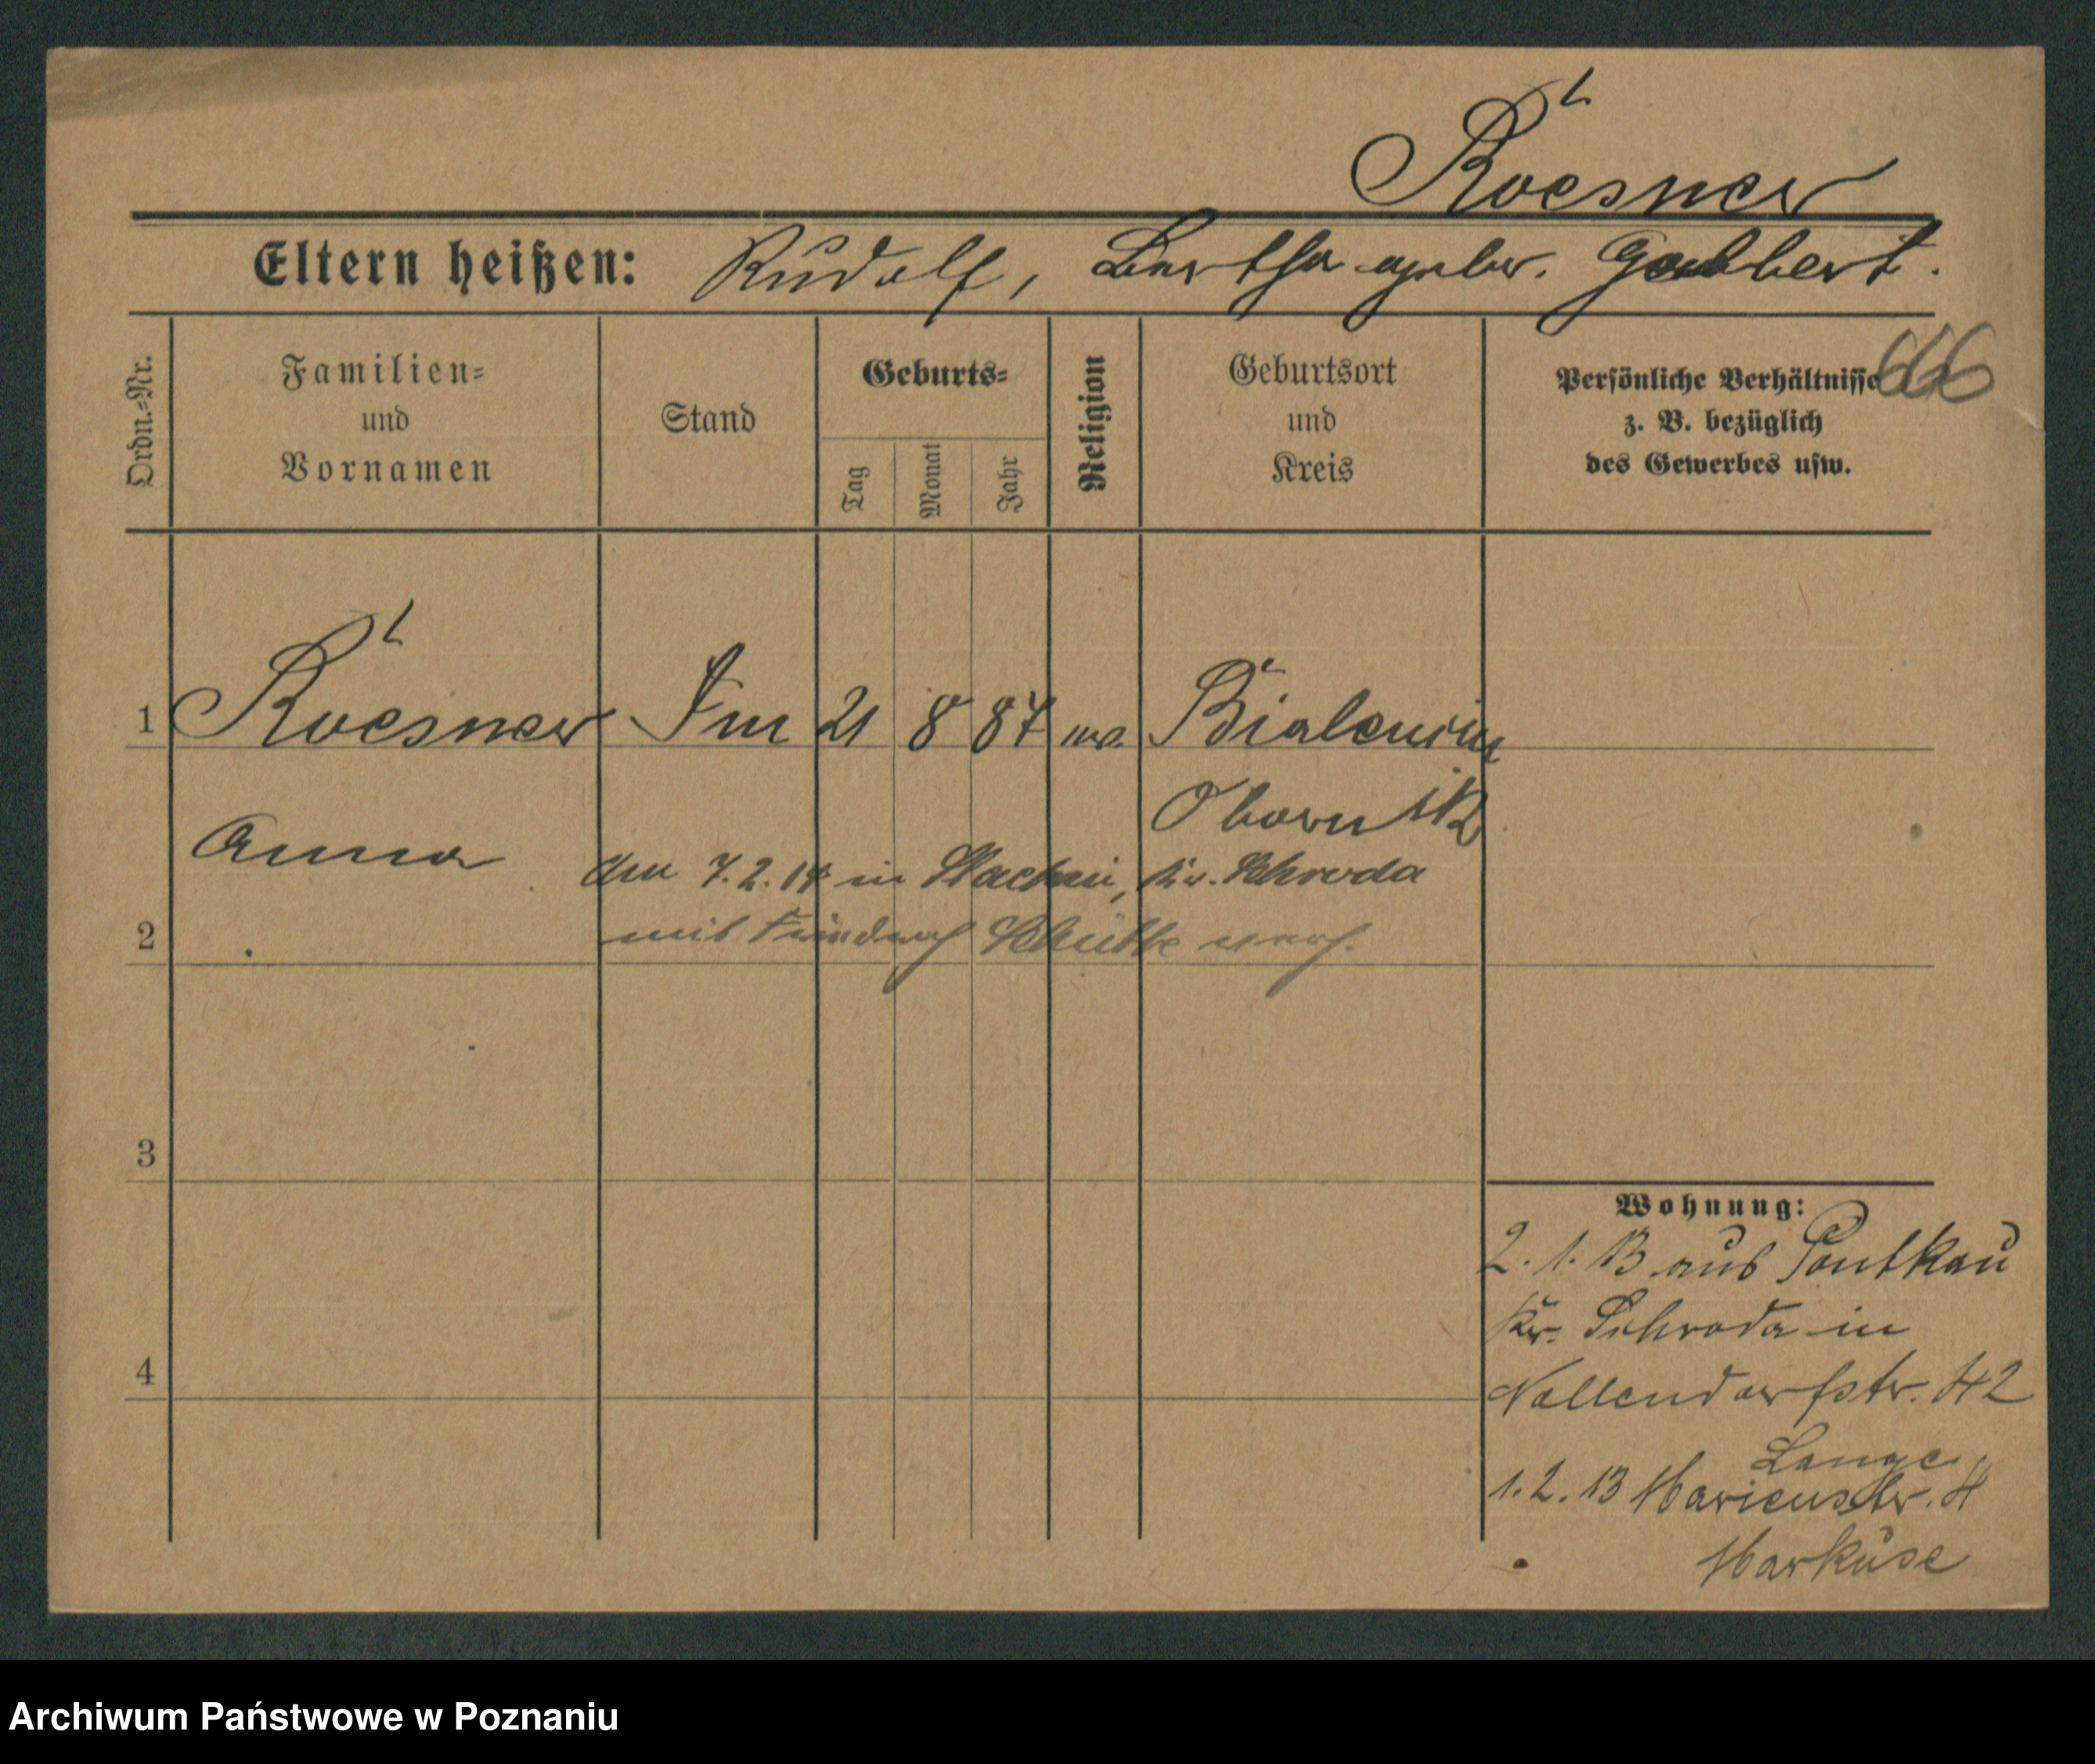 Roesner
Eltern heißen: Rudolf, Bertha geb. Gabbert.
666
Ordn.=Nr.
Familien=
und
Vornamen
Stand
Geburts=
Tag
Monat
Jahr
Religion
Geburtsort
und
Kreis
Persönliche Verhältnisse
z. B. bezüglich
des Gewerbes usw.
1 Roesner 21 8 87 ev.
Obornik
Anna
Am 7.2.14 in Kr. Schroda
2 mit Friedrich Schütke verh.
3
4
Wohnung:
2. 1. 13 aus
Kr. Schroda in
Nollendorfstr. 42
Lange
1. 2. 13 Marienstr. 4
Markuse
Archiwum Państwowe w Poznaniu